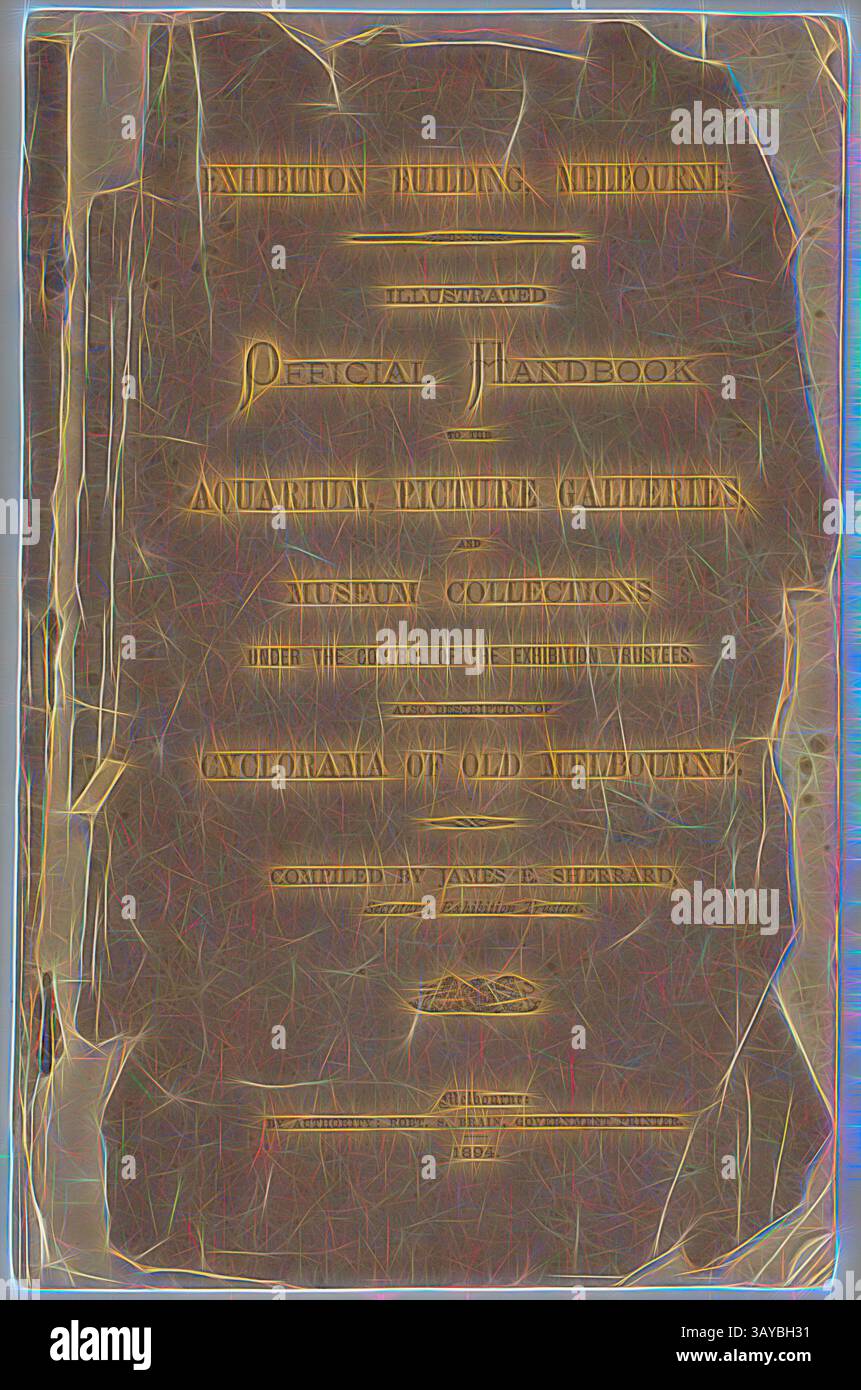 EXHIBITION BUILDING, MELBOURNE.
ILLUSTRATED
OFFICIAL HANDBOOK
TO THE
AQUARIUM, PICTURE GALLERIES,
AND
MUSEUM COLLECTIONS
UNDER THE CONTROL OF THE EXHIBITION TRUSTEES.
ALSO DESCRIPTION OF
CYCLORAMA OF OLD MELBOURNE.
COMPILED BY JAMES E. SHERRARD,
Secretary Exhibition Trustees.
Melbourne:
BY AUTHORITY: ROBT. S. BRAIN, GOVERNMENT PRINTER.
1894.
alamy
Image ID: 3AYBH31
www.alamy.com